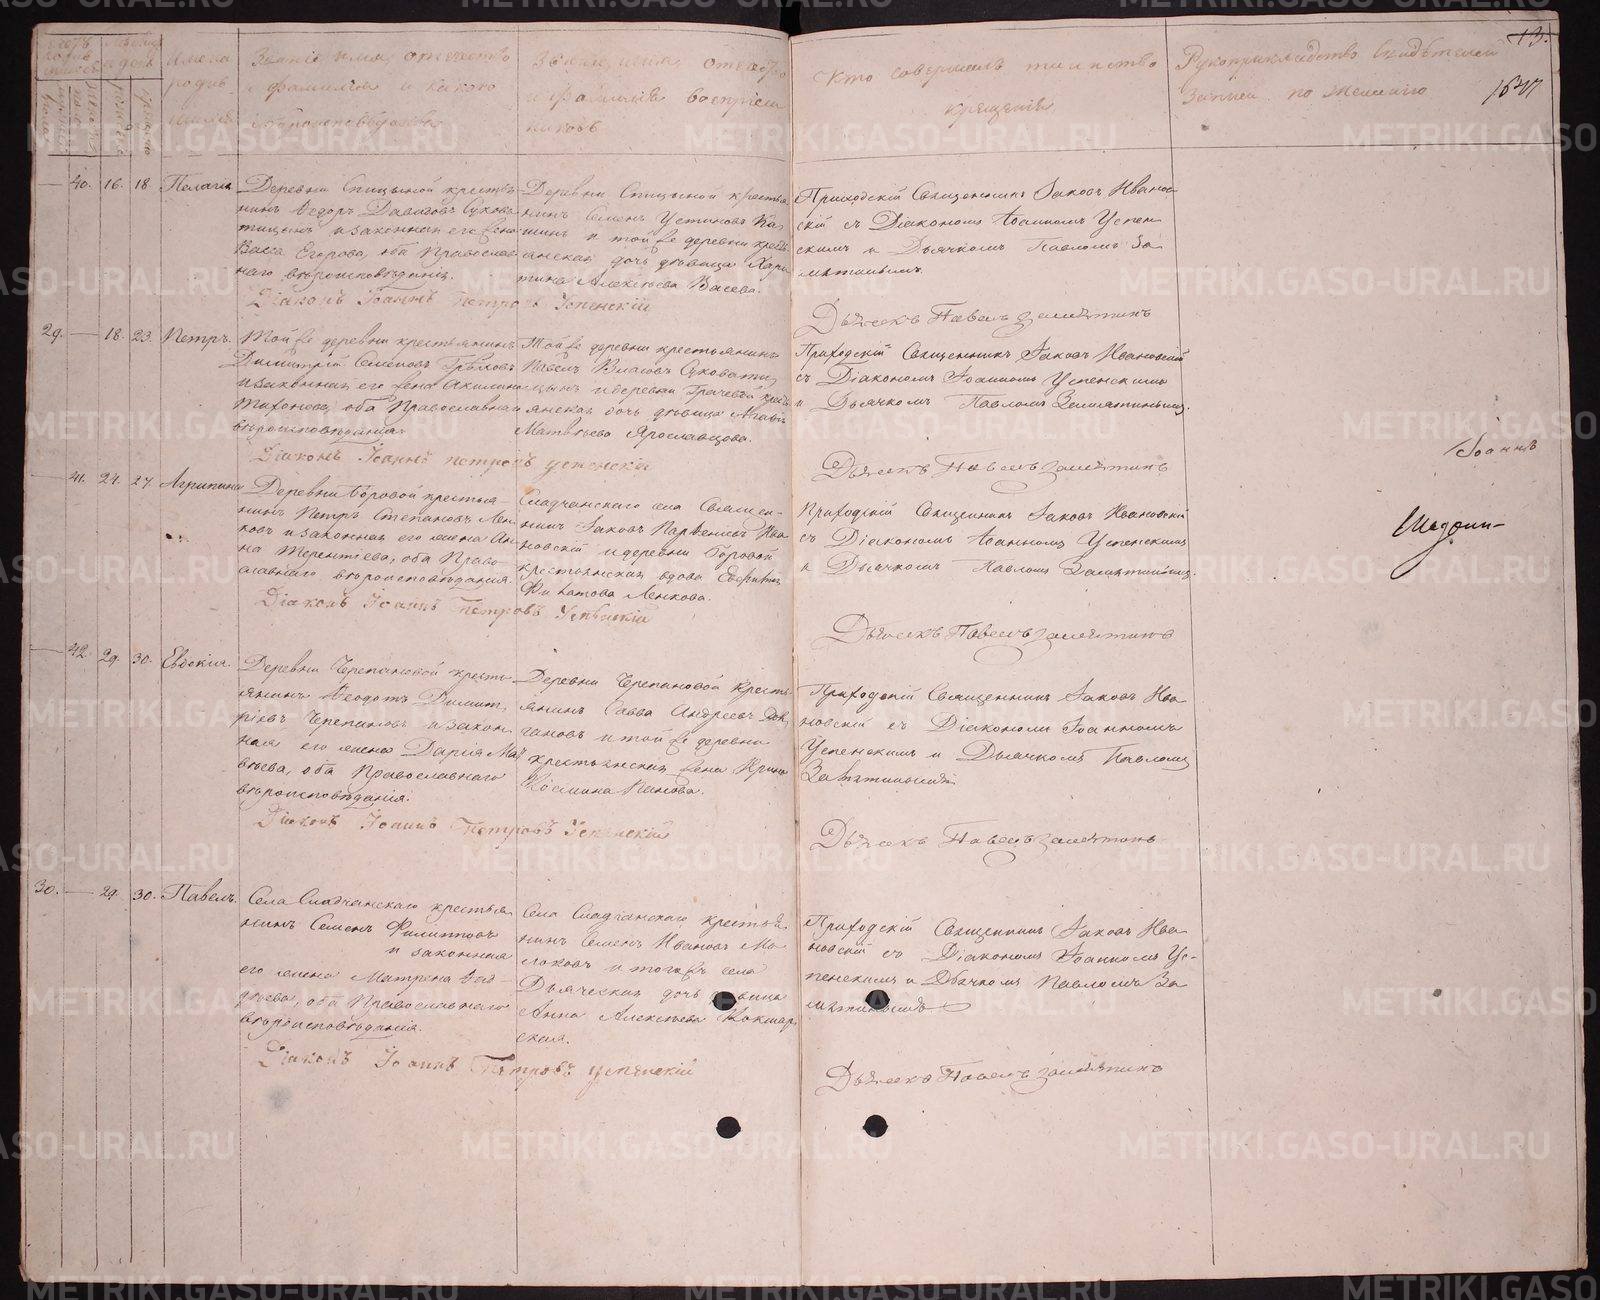 Имена родив
Званіе, имя, отчество
и фамилія и какого
вѣроисповѣданія
Званіе, имя, отчество
и фамилія воспріем
никовъ
Кто совершалъ таинство
крещенія
Рукоприкладство свидѣтелей
записи по желанію
13.
40. 16. 18. Пелагія
Деревни Спицыной крестья
нинъ Ѳедоръ Давидовъ Сухова
тицынъ и законная его жена
Васса Егорова, оба Православ
наго вѣроисповѣданія.
Діаконъ Іоаннъ Петровъ Успенскій
Деревни Спицыной крестья
нинъ Семенъ Устиновъ
и той же деревни кресть
янская дочь дѣвица Хари
тина Алексѣева Васева.
Приходскій Священникъ Іаковъ Иванов
скій съ Діакономъ Іоанномъ Успен
скимъ и Дьячкомъ Павломъ За
мятинымъ.
Дьячекъ Павелъ Замятинъ
29. — 18. 23. Петръ.
Той же деревни крестьянинъ
Димитрій Семеновъ
и законная его жена Акилина
Тихонова, оба Православнаго
вѣроисповѣданія.
Діаконъ Іоаннъ Петровъ Успенскій
Той же деревни крестьянинъ
Павелъ Власовъ Суховати
цынъ и деревни Грачевой кресть
янская дочь дѣвица Агафія
Матвѣева Ярославцова.
Приходскій Священникъ Іаковъ Ивановскій
съ Діакономъ Іоанномъ Успенскимъ
и Дьячкомъ Павломъ Замятинымъ.
Дьячекъ Павелъ Замятинъ
Іоаннъ
— 41. 24. 27. Агрипина
Деревни Боровой крестья
нинъ Петръ Степановъ Лен
ковъ и законная его жена Ан
на Терентіева, оба Право
славнаго вѣроисповѣданія.
Діаконъ Іоаннъ Петровъ Успенскій
Сладчанскаго села Священ
никъ Іаковъ Парѳеновъ Ива
новскій и деревни Боровой
крестьянская вдова
Филатова Ленкова.
Приходскій Священникъ Іаковъ Ивановскій
съ Діакономъ Іоанномъ Успенскимъ
и Дьячкомъ Павломъ Замятинымъ.
Дьячекъ Павелъ Замятинъ
— 42. 29. 30. Евдокія.
Деревни Черепановой кресть
янинъ Ѳеодотъ Димит
ріевъ Черепановъ и закон
ная его жена Дарія Мат
вѣева, оба Православнаго
вѣроисповѣданія.
Діаконъ Іоаннъ Петровъ Успенскій
Деревни Черепановой кресть
янинъ Савва Андреевъ
и той же деревни
крестьянская жена Ирина
Козмина Панова.
Приходскій Священникъ Іаковъ Ива
новскій съ Діакономъ Іоанномъ
Успенскимъ и Дьячкомъ Павломъ
Замятинымъ
Дьячекъ Павелъ Замятинъ
30. — 29. 30. Павелъ.
Села Сладчанскаго крестья
нинъ Семенъ Филипповъ
и законная
его жена Матрена Ѳад
дѣева, оба Православнаго
вѣроисповѣданія.
Діаконъ Іоаннъ Петровъ Успенскій
Села Сладчанскаго крестья
нинъ Семенъ Ивановъ Мо
локовъ и тогожъ села
Дьяческая дочь дѣвица
Анна Алексѣева Кокшар
ская.
Приходскій Священникъ Іаковъ Ива
новскій съ Діакономъ Іоанномъ Ус-
пенскимъ и Дьячкомъ Павломъ За
мятинымъ
Дьячекъ Павелъ Замятинъ
METRIKI.GASO-URAL.RU